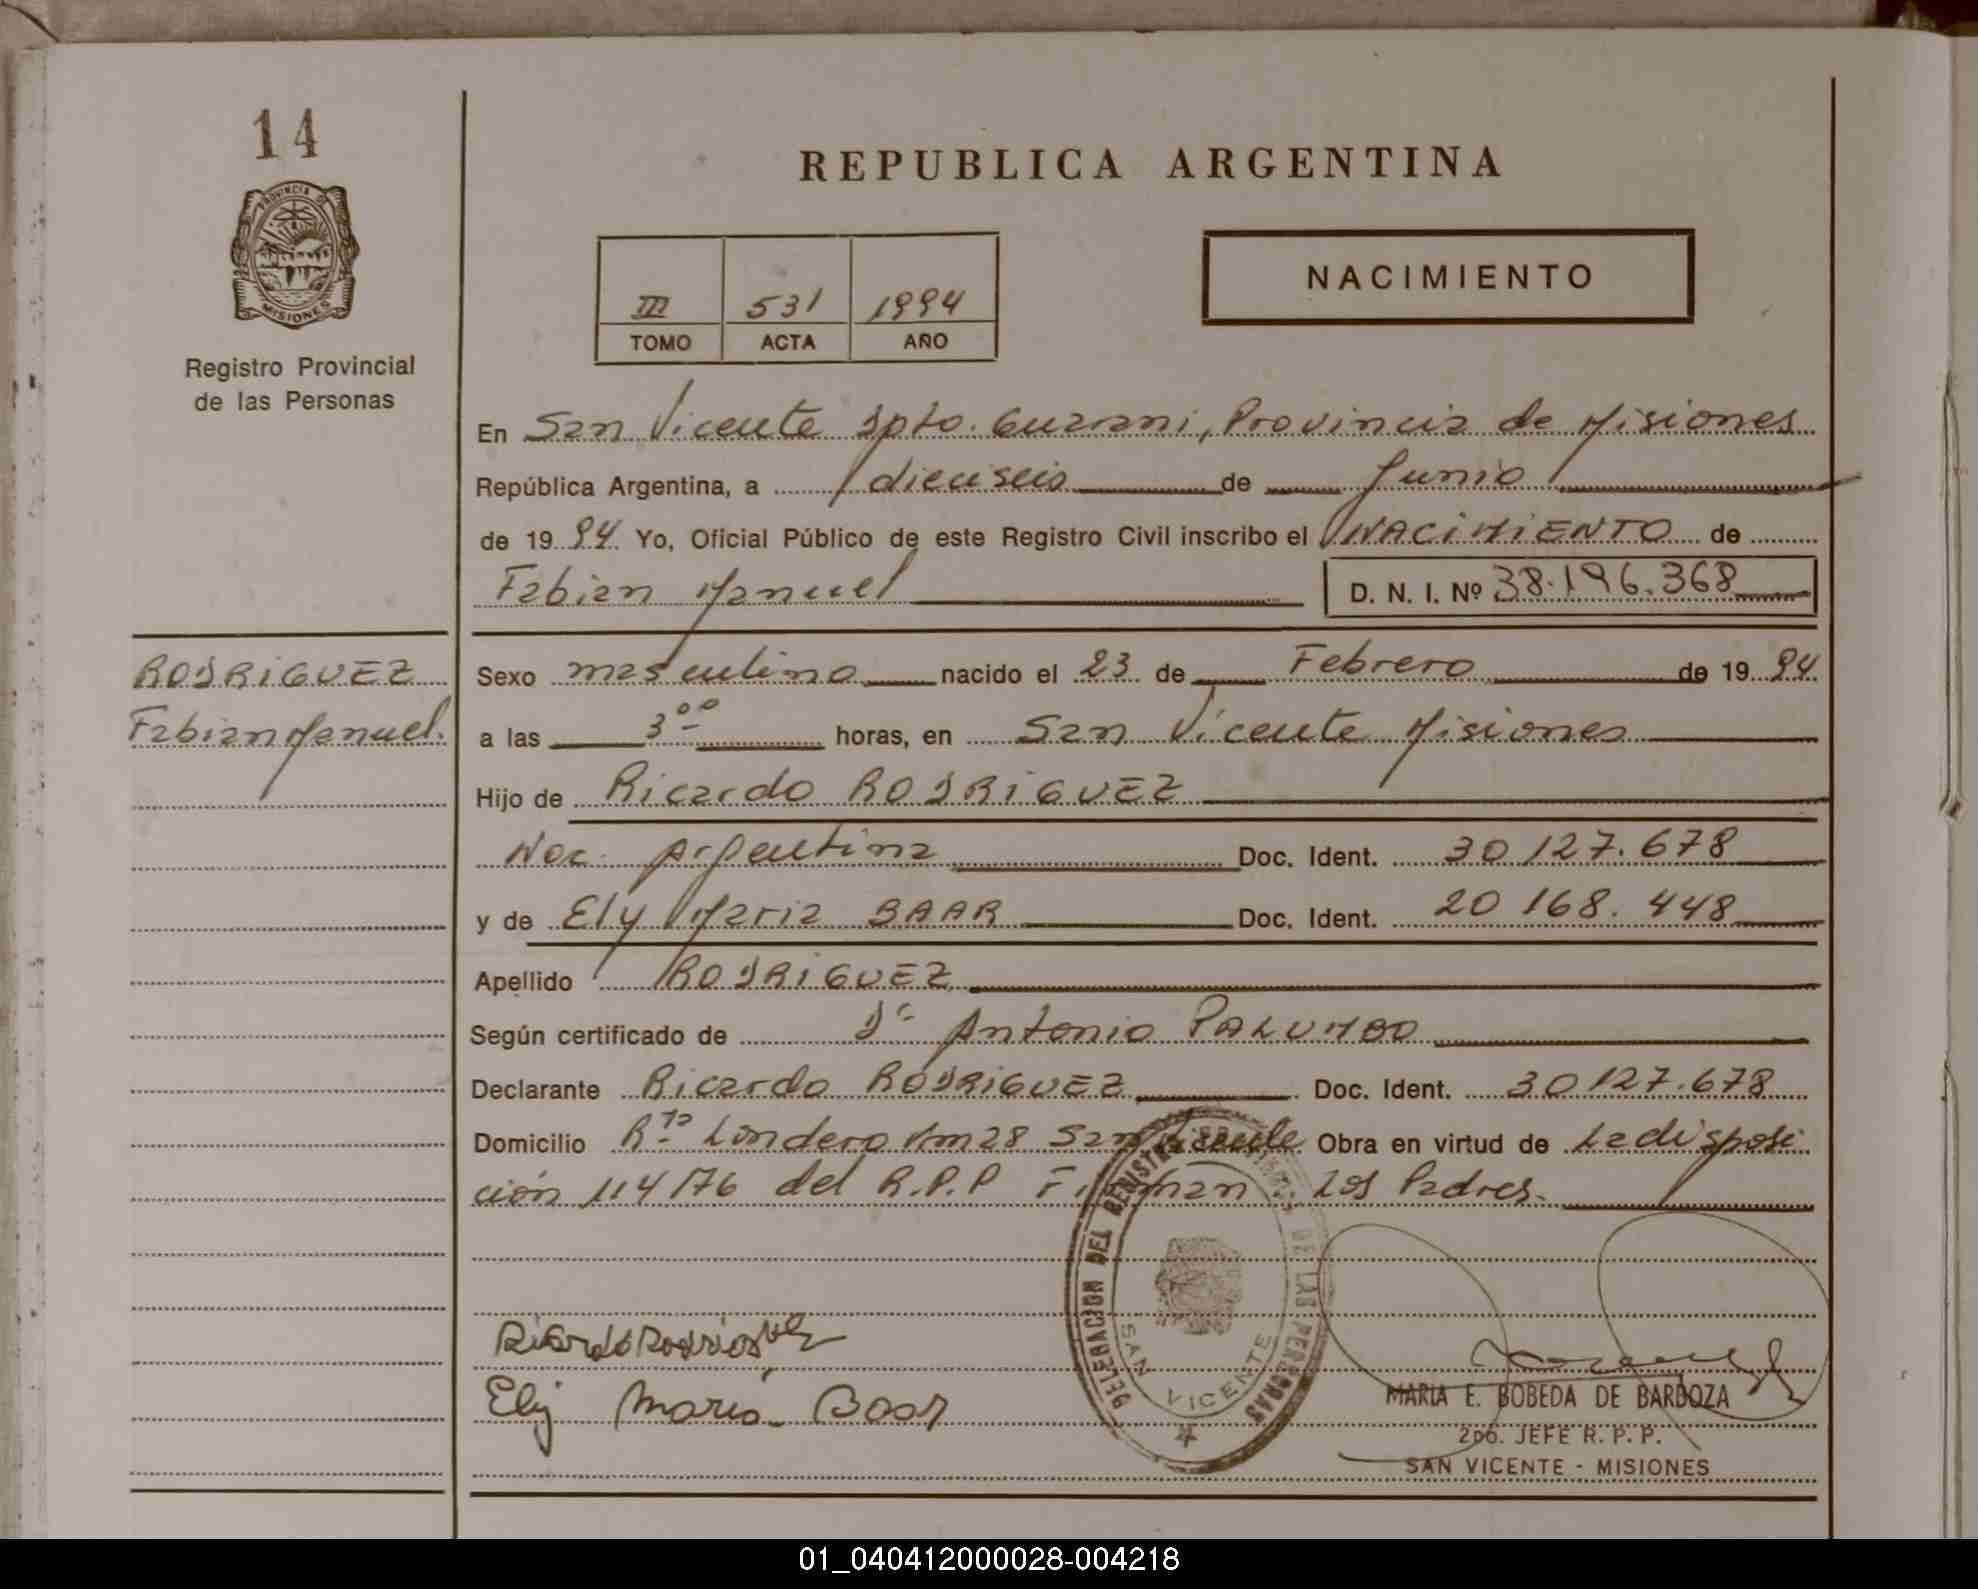 14
PROVINCIA DE
MISIONES
Registro Provincial
de las Personas
REPUBLICA ARGENTINA
III 531 1994
TOMO ACTA AÑO
NACIMIENTO
En San Vicente Dpto. Guarani, Provincia de Misiones
República Argentina, a dieciseis de Junio
de 1994. Yo, Oficial Público de este Registro Civil inscribo el NACIMIENTO de
Fabian Manuel D. N. I. Nº 38.196.368
RODRIGUEZ
Fabian Manuel.
Sexo masculino nacido el 23 de Febrero de 1994
a las 3⁰⁰ horas, en San Vicente Misiones
Hijo de Ricardo RODRIGUEZ
Nac. Argentina Doc. Ident. 30 127.678
y de Ely Maria BAAR Doc. Ident. 20 168.448
Apellido RODRIGUEZ
Según certificado de Dr Antonio PALUMBO
Declarante Ricardo RODRIGUEZ Doc. Ident. 30 127.678
Domicilio Rta Londero Km 28 San Vicente Obra en virtud de La disposi
ción 114/76 del R.P.P Firman Los Padres.
Ricardo Rodriguez
Ely Maria Baar
DELEGACION DEL REGISTRO PROVINCIAL DE LAS PERSONAS
SAN VICENTE
MARIA E. BOBEDA DE BARBOZA
2do. JEFE R. P. P.
SAN VICENTE - MISIONES
01_040412000028-004218